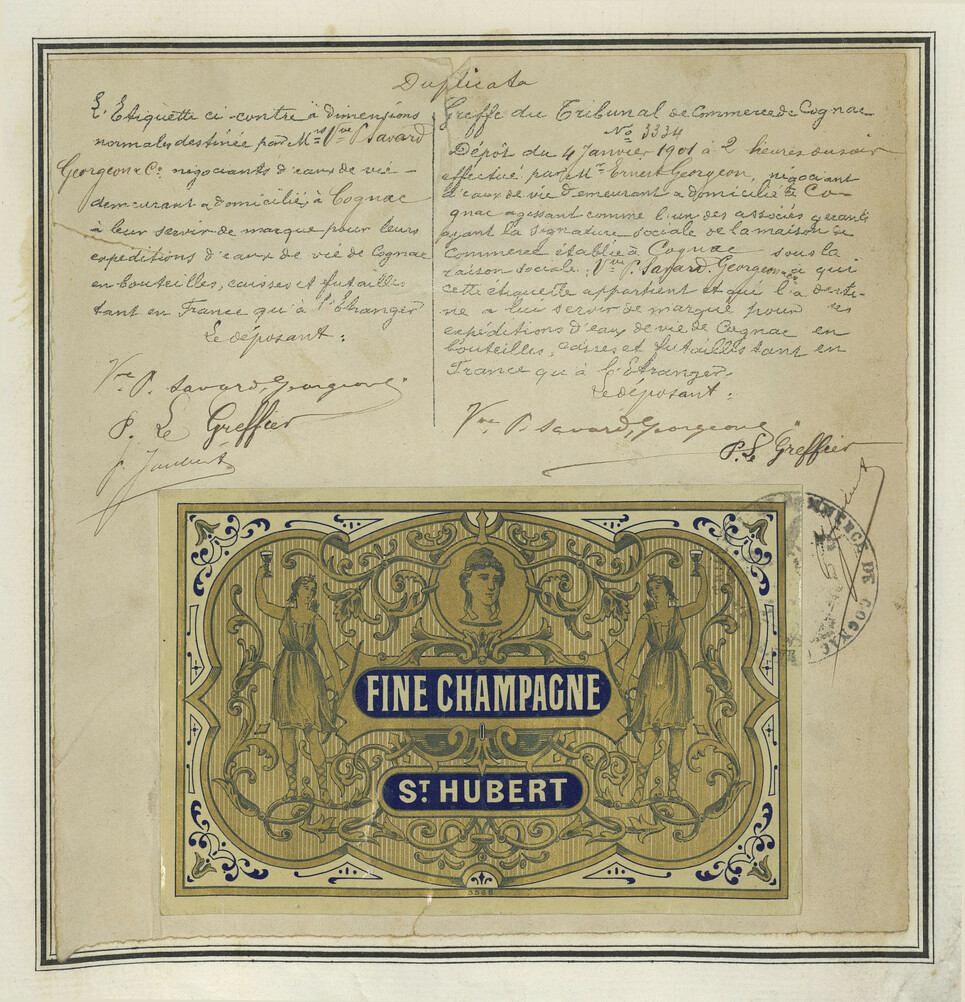 Duplicata
L'Etiquette ci-contre à dimensions
normales destinée par Mrs Vve P. Savard
Georgeon & Co negociants d'eaux de vie
demeurant & domiciliés à Cognac
à leur servir de marque pour leurs
expéditions d'eaux de vie de Cognac
en bouteilles, caisses et futailles
tant en France qu'à l'Etranger
Le déposant :
Vve P. Savard, Georgeon &
P. Le Greffier
Greffe du Tribunal de Commerce de Cognac
No 3334
Dépôt du 4 Janvier 1901 à 2 heures du soir
effectué par Mr Ernest Georgeon, negociant
d'eaux de vie demeurant & domicilié à Co-
gnac agissant comme l'un des associés gerants
ayant la signature sociale de la maison de
Commerce établie à Cognac sous la
raison sociale, Vve P. Savard. Georgeon & Co à qui
cette étiquette appartient et qui l'a desti-
née à lui servir de marque pour ses
expéditions d'eaux de vie de Cognac en
bouteilles, caisses et futailles tant en
France qu'à l'Etranger.
Le déposant :
Vve P. Savard, Georgeon &
P. Le Greffier
COMMERCE DE COGNAC
FINE CHAMPAGNE
ST HUBERT